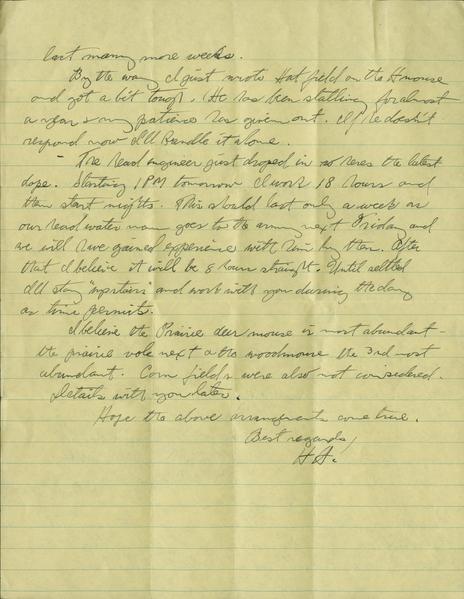 last many more weeks.
By the way I just wrote Hatfield on the H mouse
and got a bit tough. He has been stalling for almost
a year & my patience has given out. If he doesn't
respond now I'll handle it alone.
- The head engineer just droped in so heres the latest
dope. Starting 1 PM tomorrow I work 18 hours and
then start nights. This should last only a week as
our head water man goes to the army next Friday and
we will have gained experience with him by then. After
that I believe it will be 8 hours straight. Until settled
I'll stay "upstairs" and work with you during the day
as time permits.
I believe the Prairie deer mouse is most abundant -
the prairie vole next & the woodmouse the 3rd most
abundant. Corn fields were also not considered.
Details with you later.
Hope the above arrangements come true.
Best regards,
H.A.